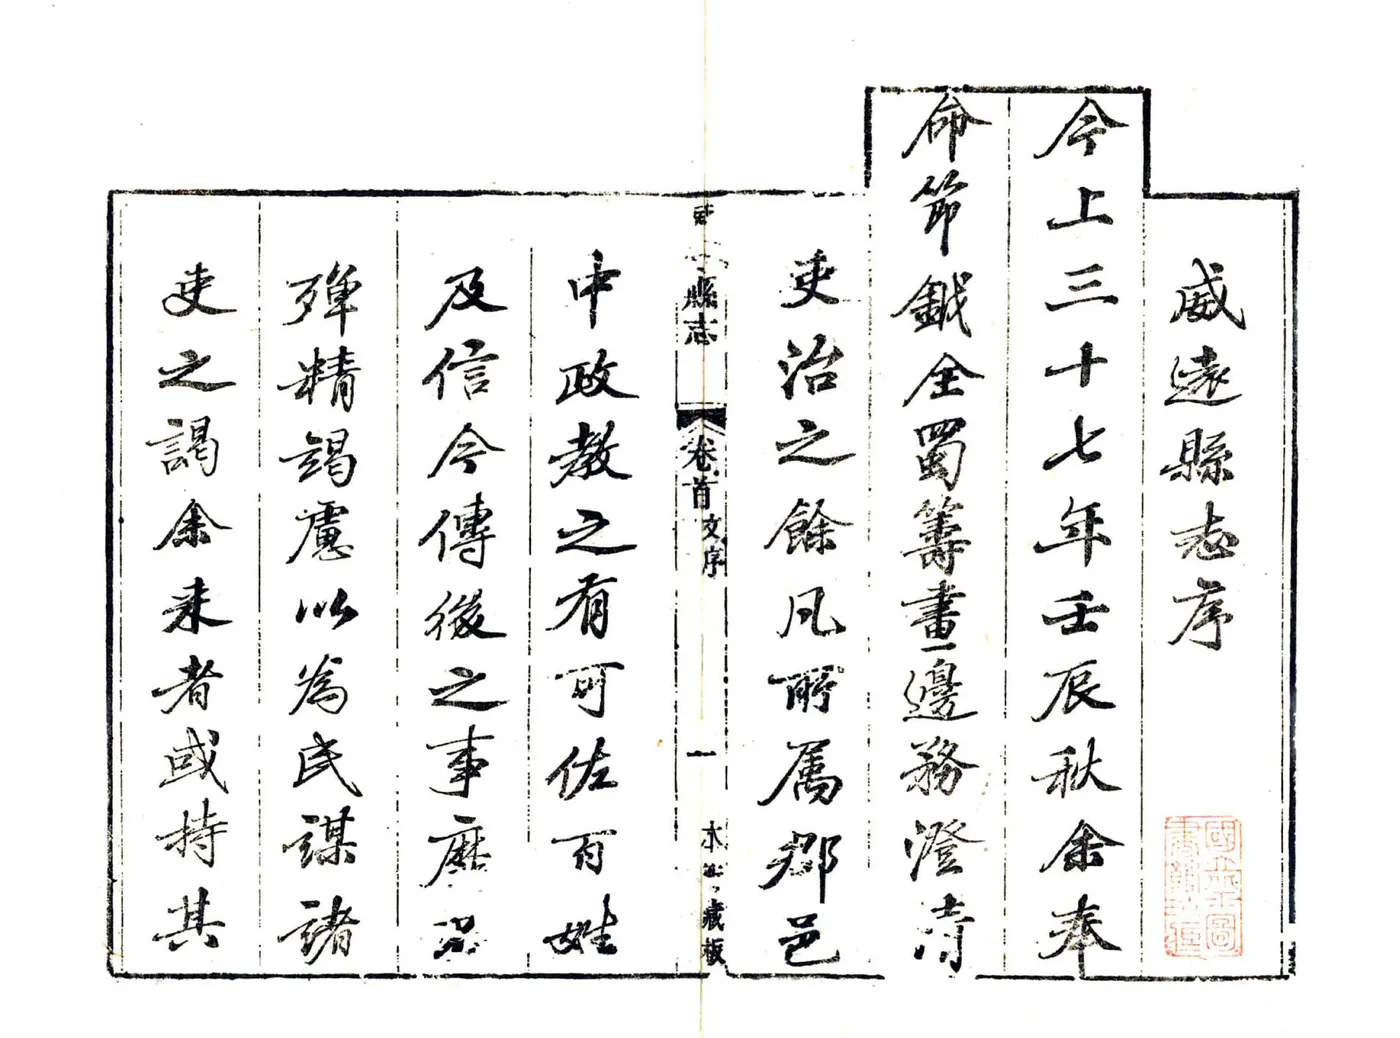 威遠縣志序
今上三十七年壬辰秋余奉
命節鉞全蜀籌畫邊務澄清
吏治之餘凡所屬郡邑
縣志
卷首
文序
一
藏板
中政教之有可佐百姓
及信今傳後之事靡不
殫精竭慮以為民謀諸
吏之謁余来者或持其